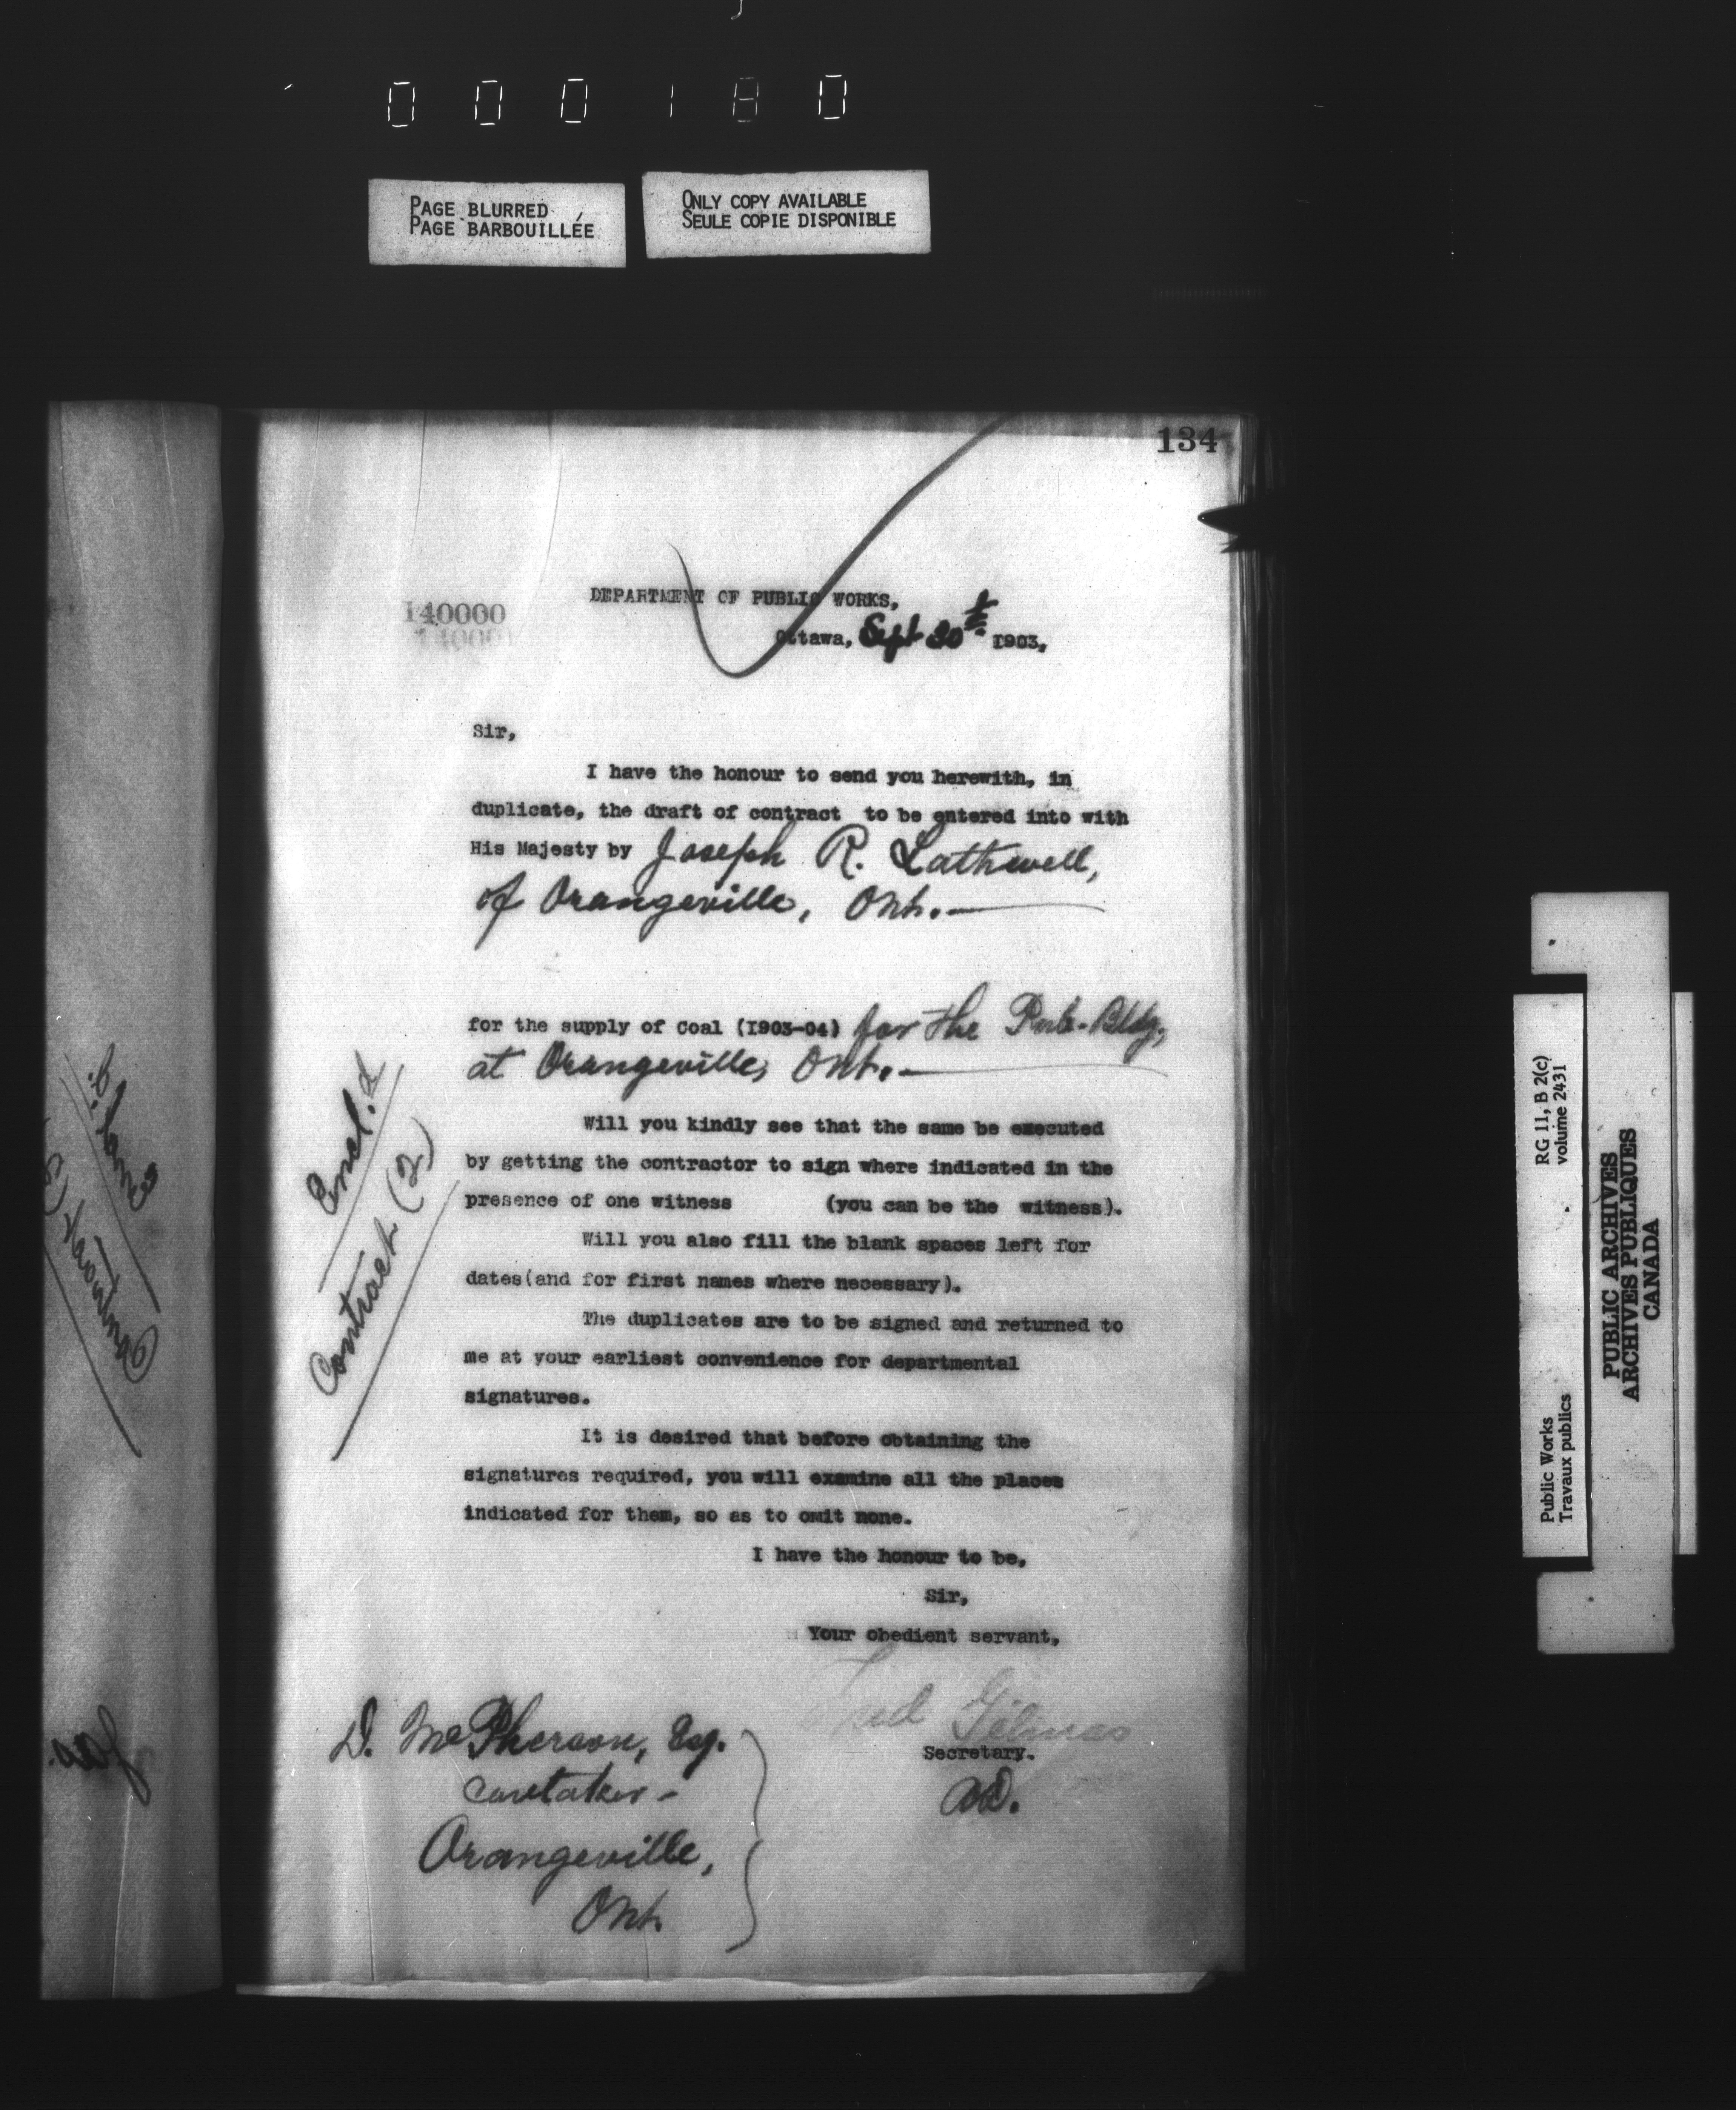 000180
PAGE BLURRED
PAGE BARBOUILLÉE
ONLY COPY AVAILABLE
SEULE COPIE DISPONIBLE
134
140000
DEPARTMENT OF PUBLIC WORKS,
Ottawa, Sept 30th 1903.
Sir,
I have the honour to send you herewith, in
duplicate, the draft of contract to be entered into with
His Majesty by Joseph R. Lathwell,
of Orangeville, Ont.—
for the supply of Coal (1903-04) for the Pub. Bldg.,
at Orangeville, Ont.—
Encl. 2
Contract (2)
Will you kindly see that the same be executed
by getting the contractor to sign where indicated in the
presence of one witness (you can be the witness).
Will you also fill the blank spaces left for
dates(and for first names where necessary).
The duplicates are to be signed and returned to
me at your earliest convenience for departmental
signatures.
It is desired that before obtaining the
signatures required, you will examine all the places
indicated for them, so as to omit none.
I have the honour to be,
Sir,
Your obedient servant,
Fred Gélinas
Secretary.
D. McPherson, Esq.
Caretaker -
Orangeville,
Ont.
RG 11, B 2(c)
volume 2431
Public Works
Travaux publics
PUBLIC ARCHIVES
ARCHIVES PUBLIQUES
CANADA